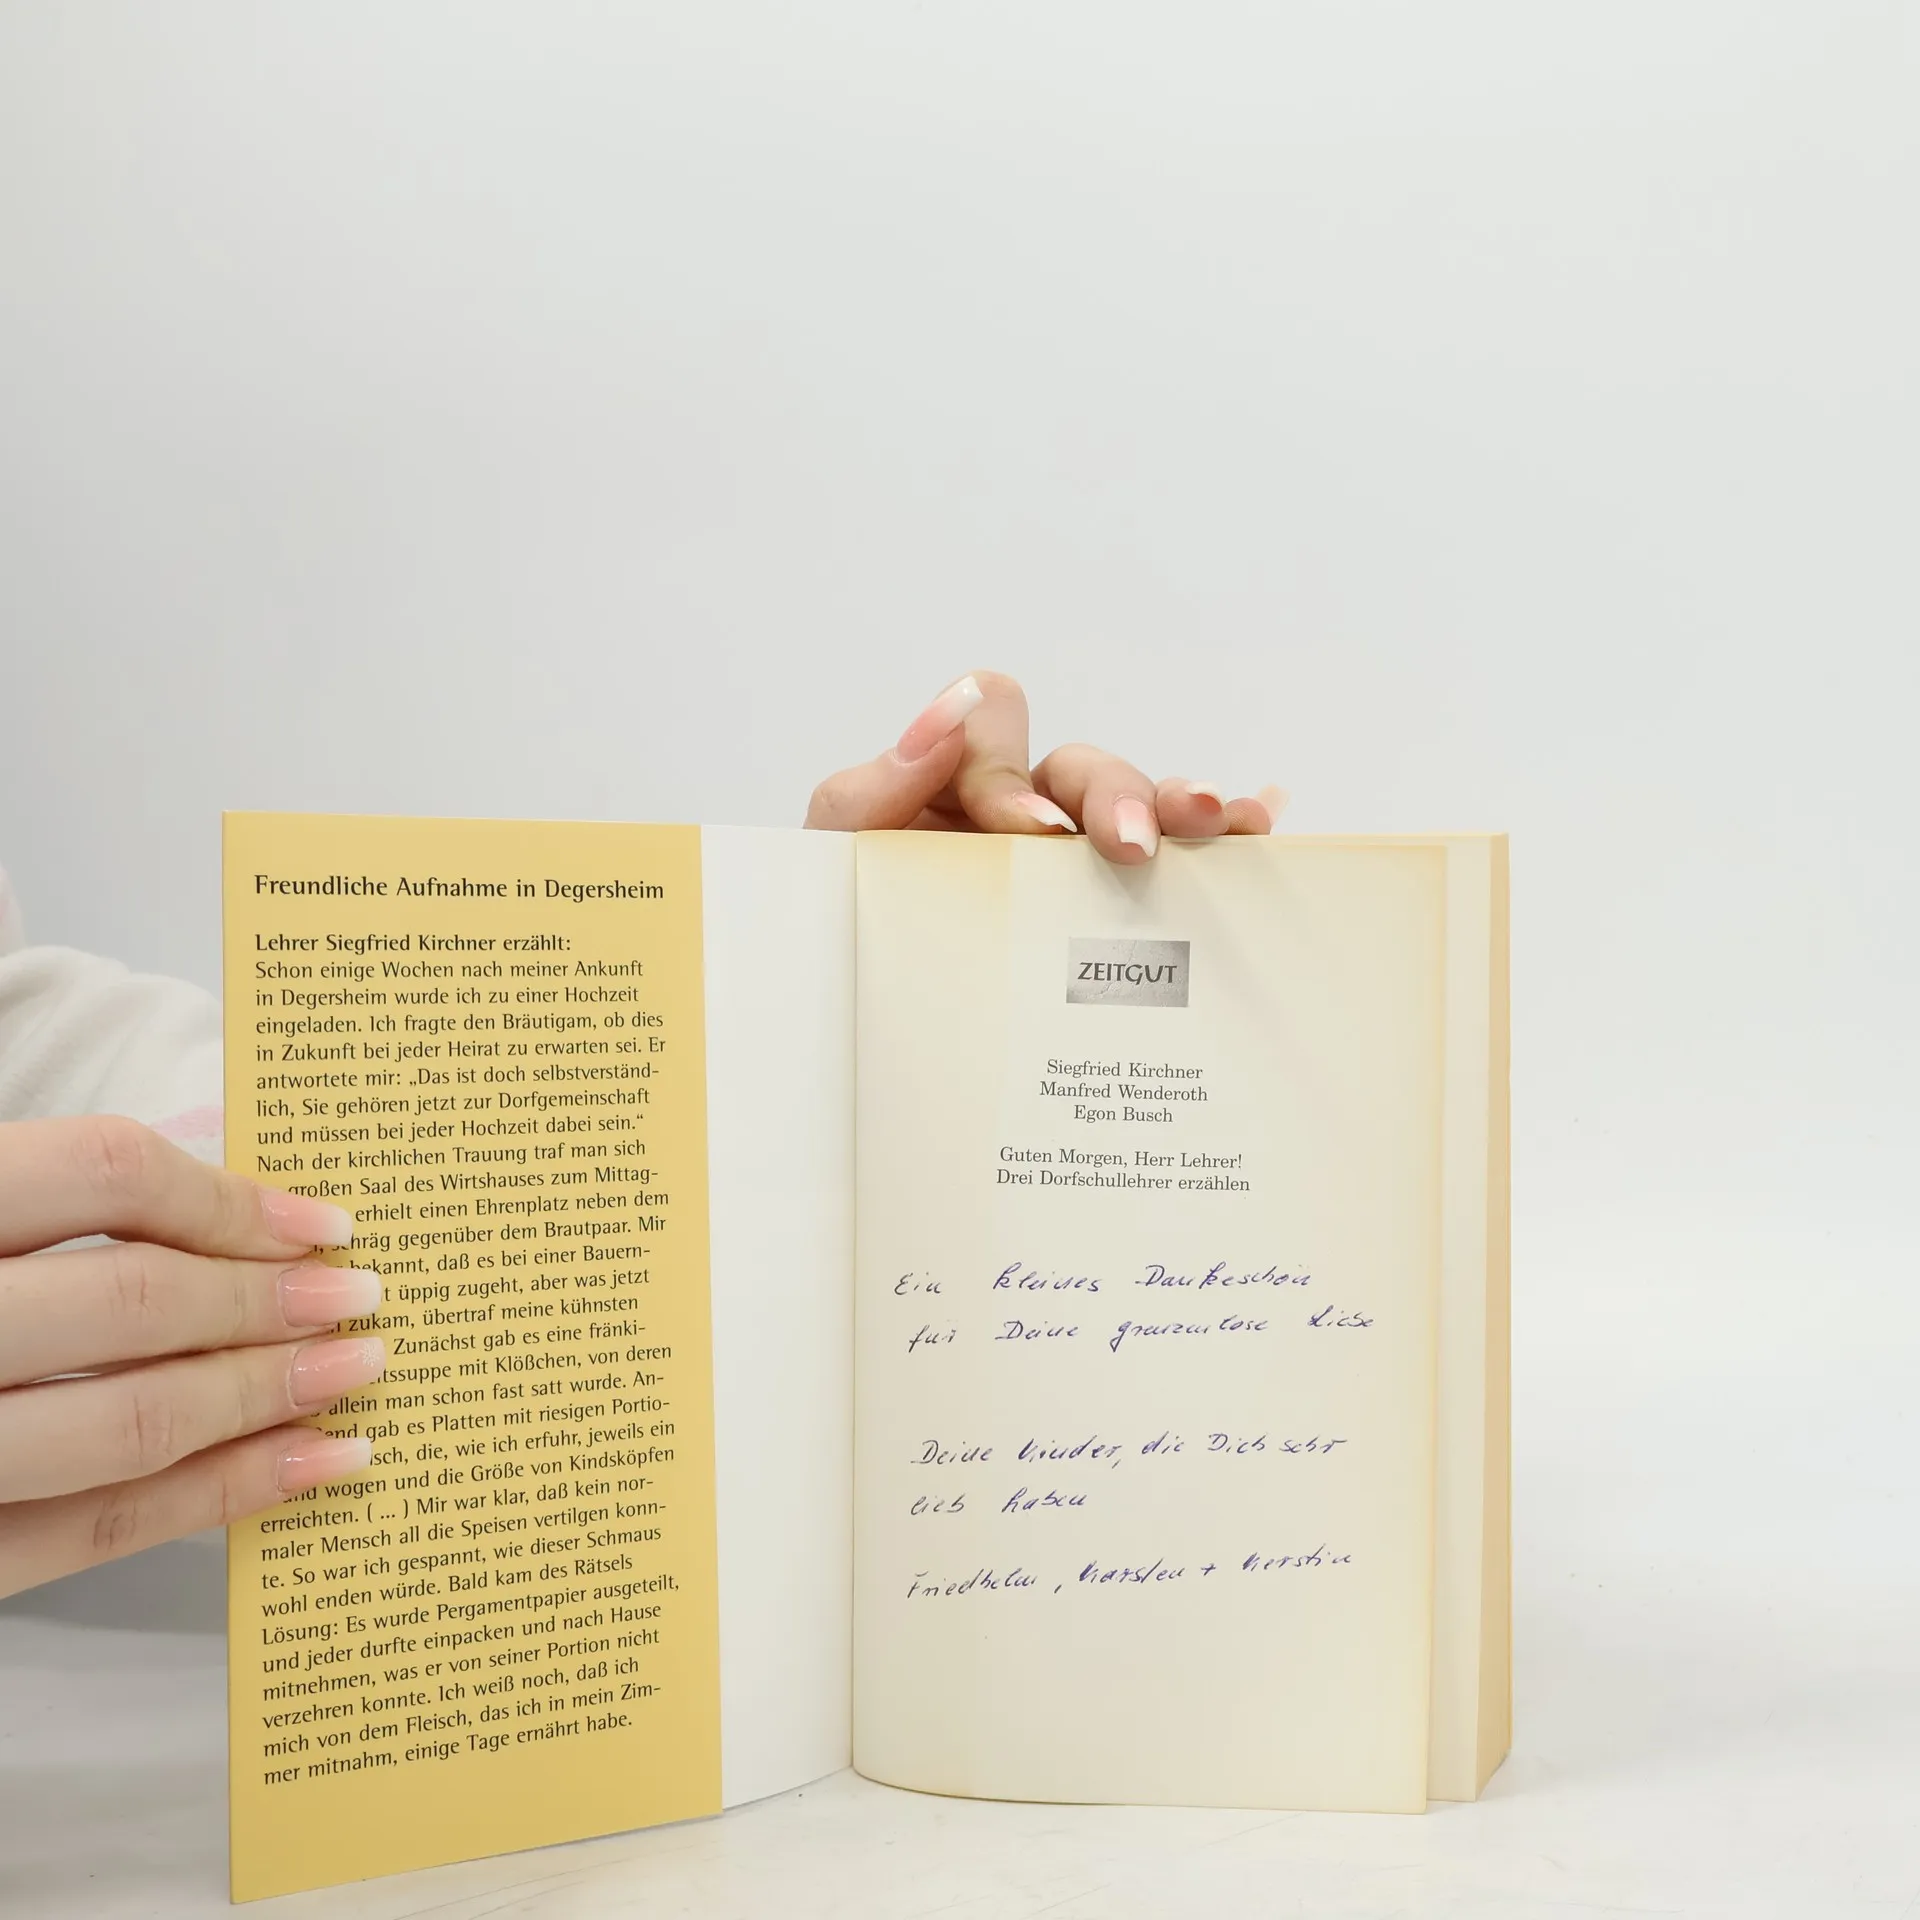 Freundliche Aufnahme in Degersheim
Lehrer Siegfried Kirchner erzählt:
Schon einige Wochen nach meiner Ankunft
in Degersheim wurde ich zu einer Hochzeit
eingeladen. Ich fragte den Bräutigam, ob dies
in Zukunft bei jeder Heirat zu erwarten sei. Er
antwortete mir: „Das ist doch selbstverständ-
lich, Sie gehören jetzt zur Dorfgemeinschaft
und müssen bei jeder Hochzeit dabei sein.“
Nach der kirchlichen Trauung traf man sich
großen Saal des Wirtshauses zum Mittag-
erhielt einen Ehrenplatz neben dem
schräg gegenüber dem Brautpaar. Mir
bekannt, daß es bei einer Bauern-
üppig zugeht, aber was jetzt
zukam, übertraf meine kühnsten
Zunächst gab es eine fränki-
itssuppe mit Klößchen, von deren
allein man schon fast satt wurde. An-
end gab es Platten mit riesigen Portio-
isch, die, wie ich erfuhr, jeweils ein
und wogen und die Größe von Kindsköpfen
erreichten. ( ... ) Mir war klar, daß kein nor-
maler Mensch all die Speisen vertilgen konn-
te. So war ich gespannt, wie dieser Schmaus
wohl enden würde. Bald kam des Rätsels
Lösung: Es wurde Pergamentpapier ausgeteilt,
und jeder durfte einpacken und nach Hause
mitnehmen, was er von seiner Portion nicht
verzehren konnte. Ich weiß noch, daß ich
mich von dem Fleisch, das ich in mein Zim-
mer mitnahm, einige Tage ernährt habe.
ZEITGUT
Siegfried Kirchner
Manfred Wenderoth
Egon Busch
Guten Morgen, Herr Lehrer!
Drei Dorfschullehrer erzählen
Ein kleines Dankeschön
für Deine grenzenlose Liebe
Deine Kinder, die Dich sehr
lieb haben
Friedhelm, Karsten + Kerstin